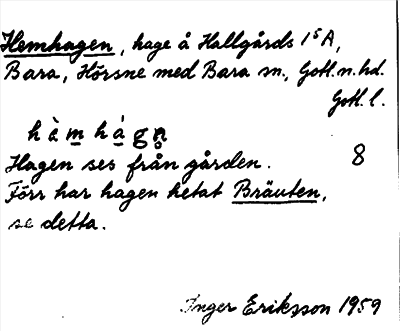 Hemhagen, hage å Hallgårds 1⁵A,
Bara, Hörsne med Bara sn., Gotl. n. hd.
Gotl. l.
hàmhágn̥
Hagen ses från gården. 8
Förr har hagen hetat Bräuten,
se detta.
Inger Eriksson 1959